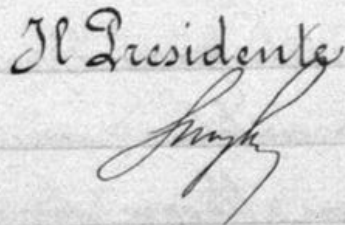 Il Presidente